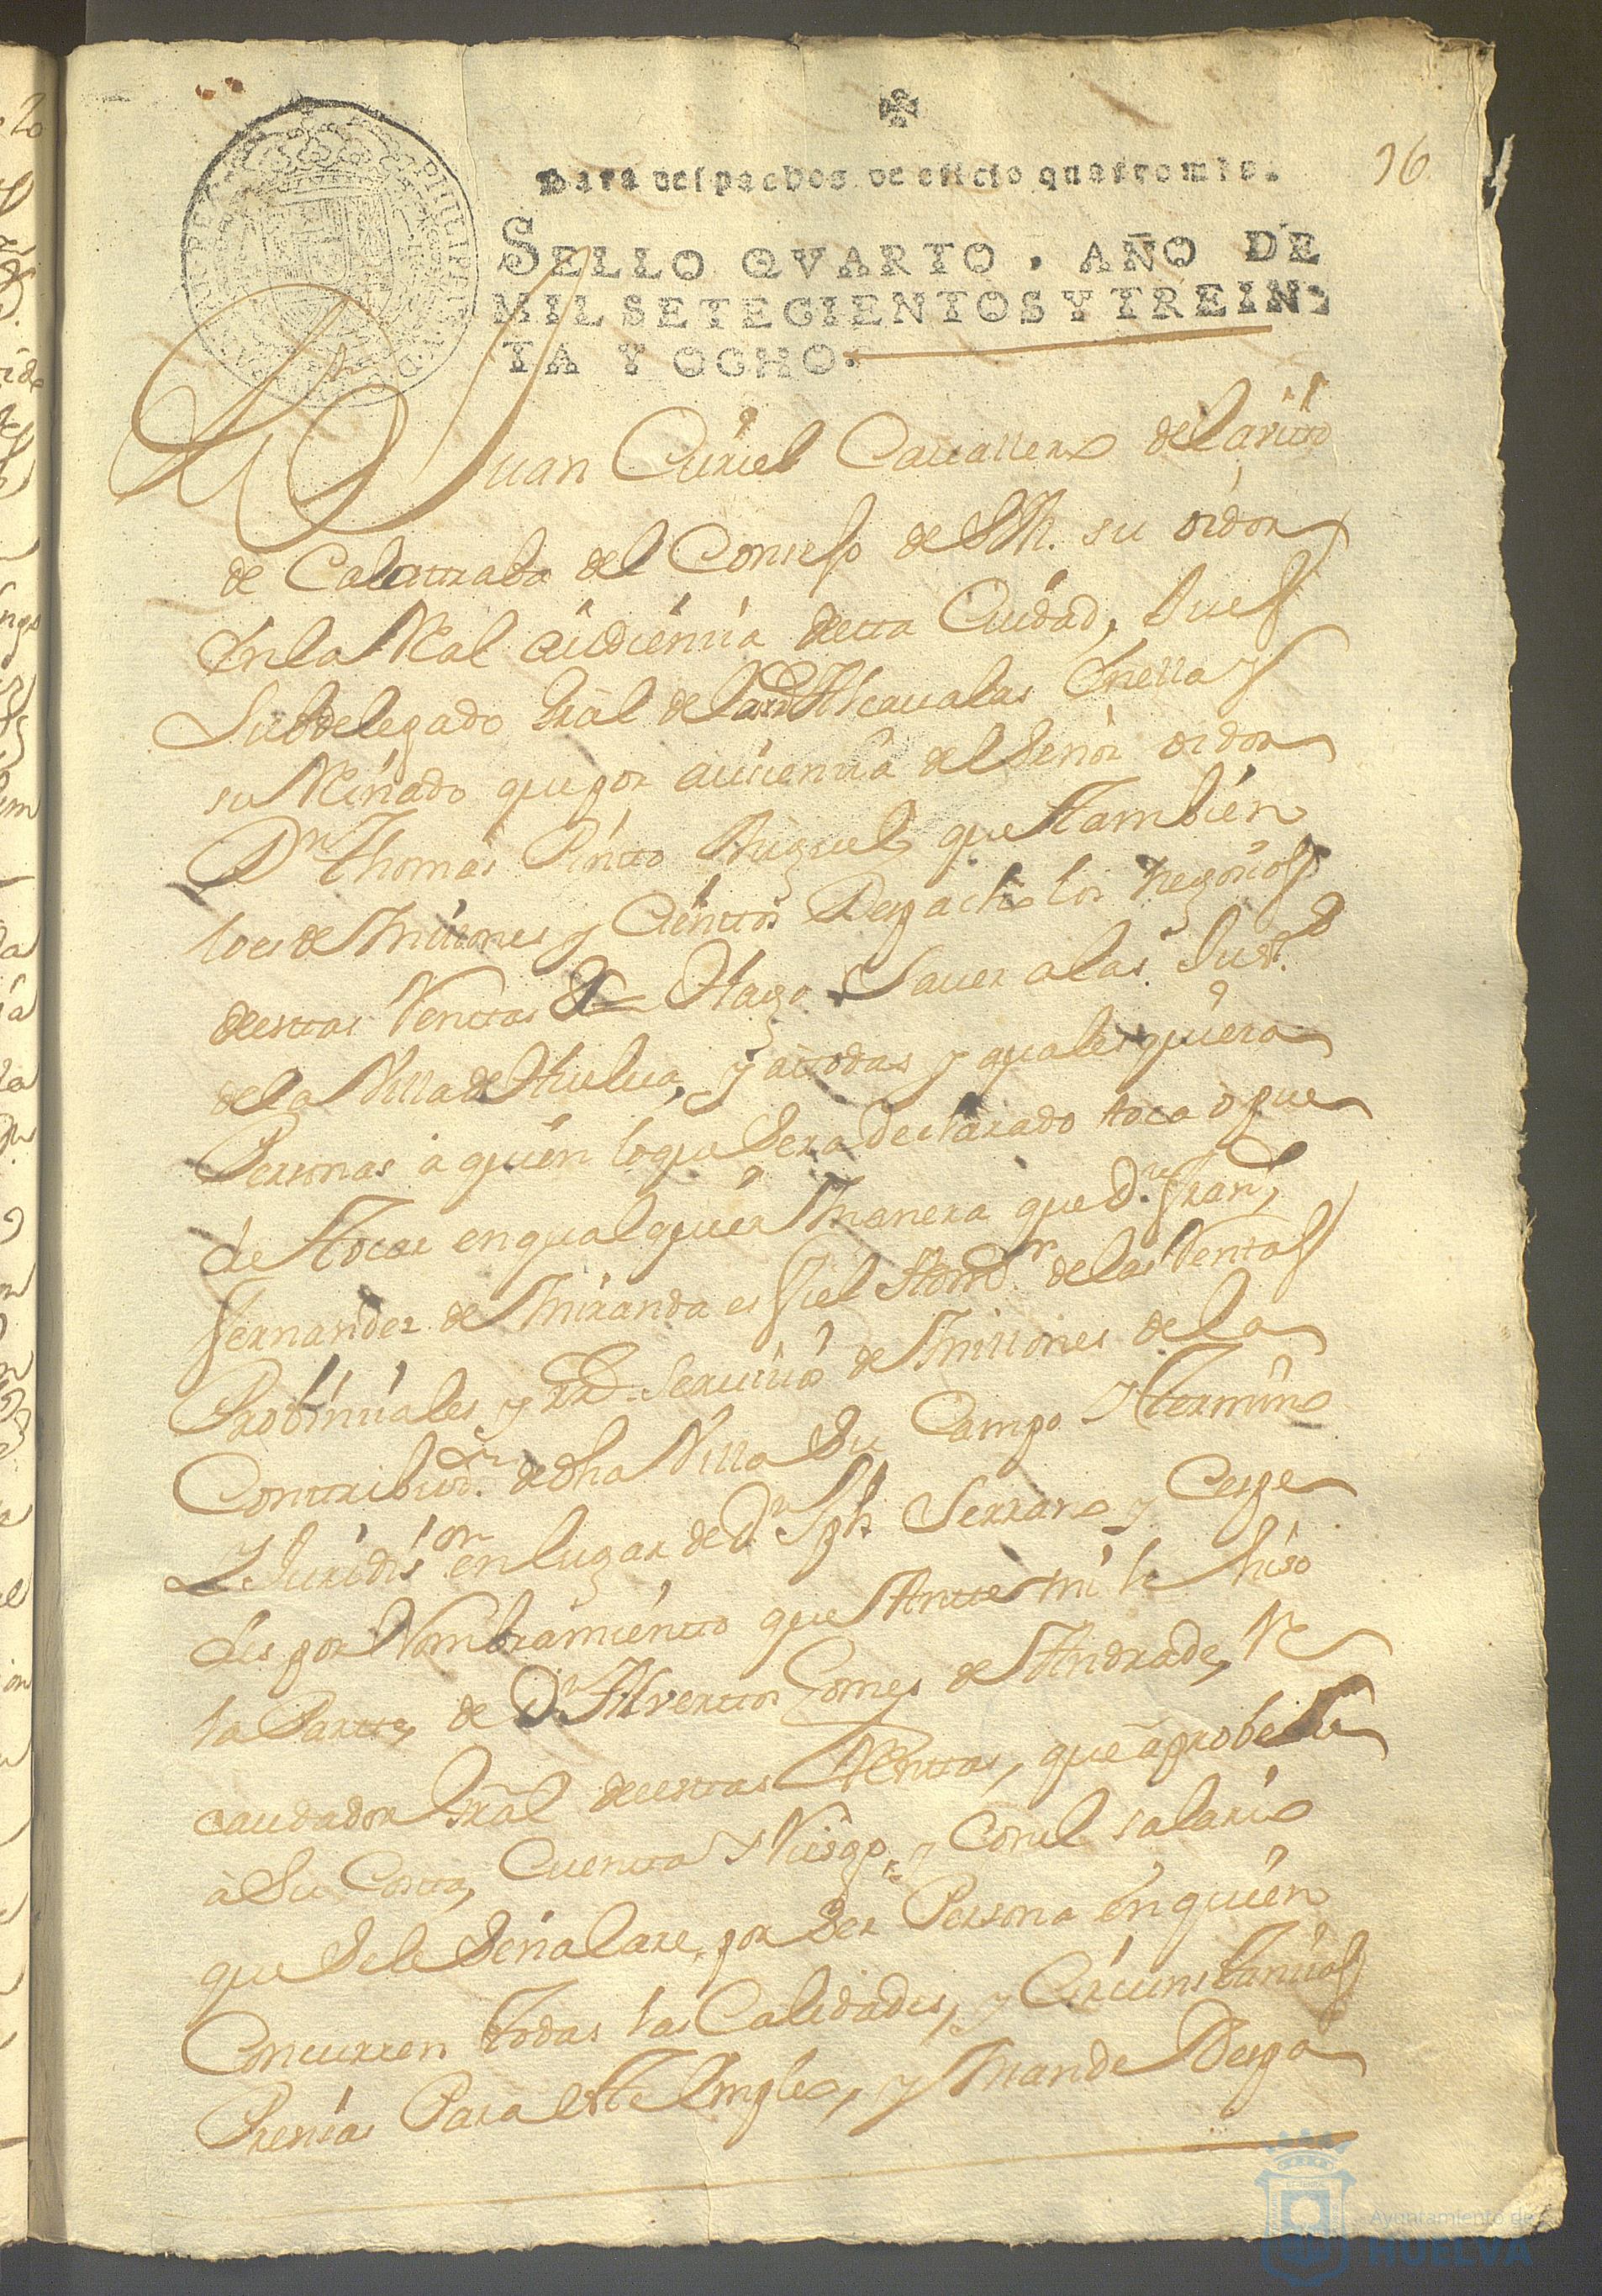 96
Para despachos de oficio quatro mrs.
SELLO QVARTO, AÑO DE
MIL SETECIENTOS Y TREIN-
TA Y OCHO.
Dn Juan Curiel Cauallero del
de Calatraba del Consejo de S.M. su oidor
En la Real audiencia detta Ciudad, Juez
Subdelegado Gral de las Alcaualas Enella y
su Reinado que por ausencia del Señor oidor
Dn Thomas Pinto Miguel, que Tambien
lo es de Millones y Cientos Despacho los negocios
destas Renttas &a Hago Sauer a las Justas
de la Villa de Huelua, y a todas y quales quiera
Personas a quien lo que Sera declarado toca o pue
de Tocar en qual quier Manera que Dn Franco
Fernandez de Miranda es fiel Admor de las Rentas
Probinciales y Rd Seruicio de Millones de la
Contribucion de dha Villa Su Campo Y termino
Y Juridision en lugar de Dn Jph Serrano y Cespe
des por Nombramientto que Ante mi le hiso
la Partte, de Dn Alvertto Gomes de Andrade, Re
caudador Gral deestas Renttas, que aprobe
a Su Costta, Cuentta Y Riesgo, y Con el salario
que Se le Señalare, por Ser Persona en quien
Concurren todas las Calidades, y Circunstancias
Presisas Para este Empleo, y Mande Despa
Ayuntamiento de
HUELVA